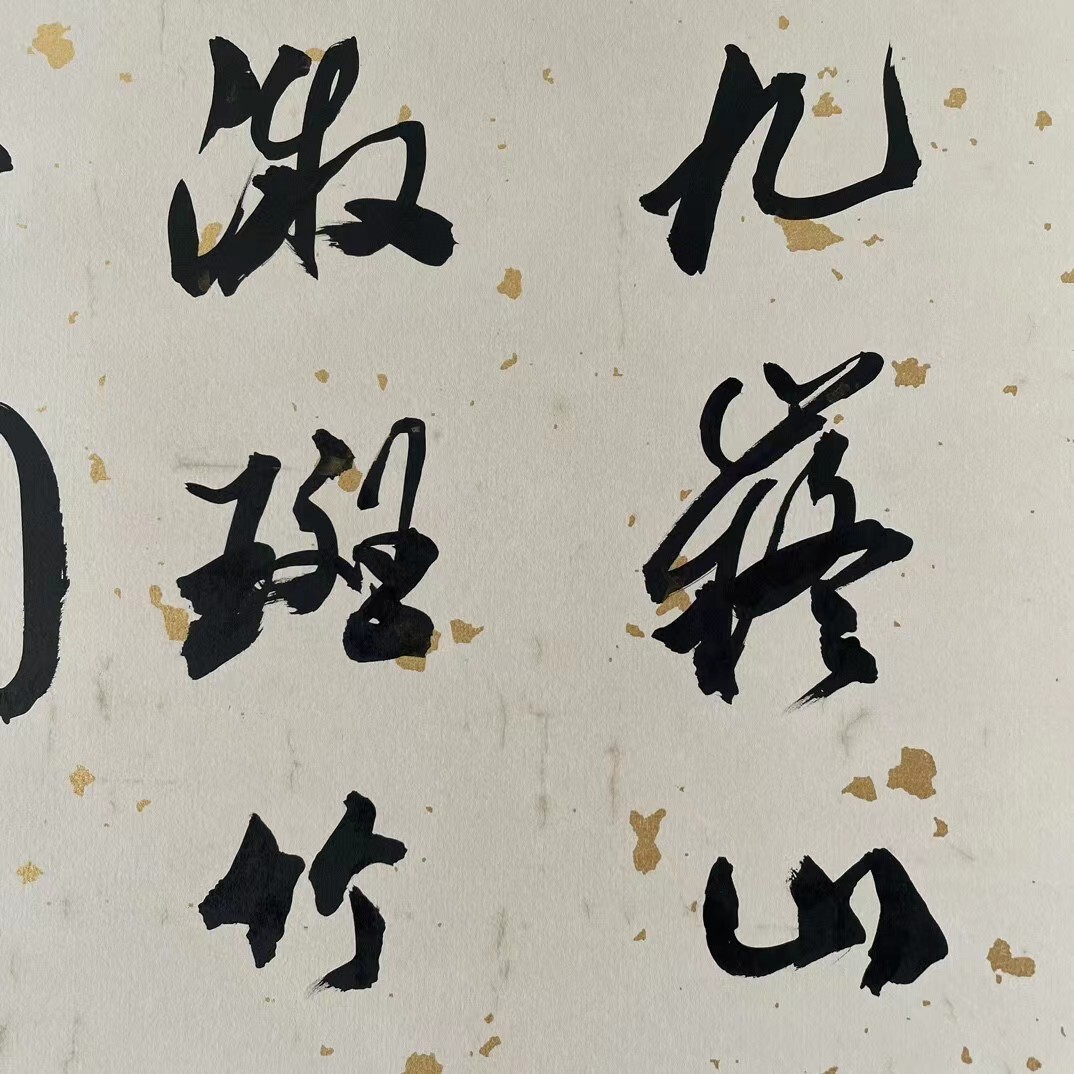 九嶷山
微斑竹